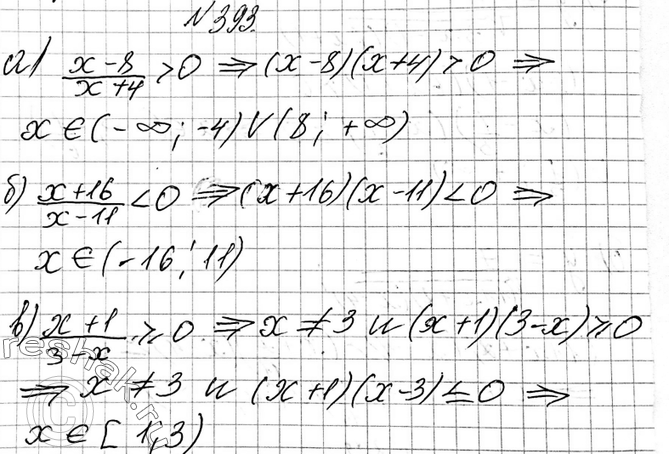 №393.
а) (x-8)/(x+4) > 0 ⇒ (x-8)(x+4) > 0 ⇒
x ∈ (-∞; -4) ∨ (8; +∞)
б) (x+16)/(x-11) < 0 ⇒ (x+16)(x-11) < 0 ⇒
x ∈ (-16; 11)
в) (x+1)/(3-x) ≥ 0 ⇒ x ≠ 3 и (x+1)(3-x) ≥ 0
⇒ x ≠ 3 и (x+1)(x-3) ≤ 0 ⇒
x ∈ [ 1; 3)
reshak.ru